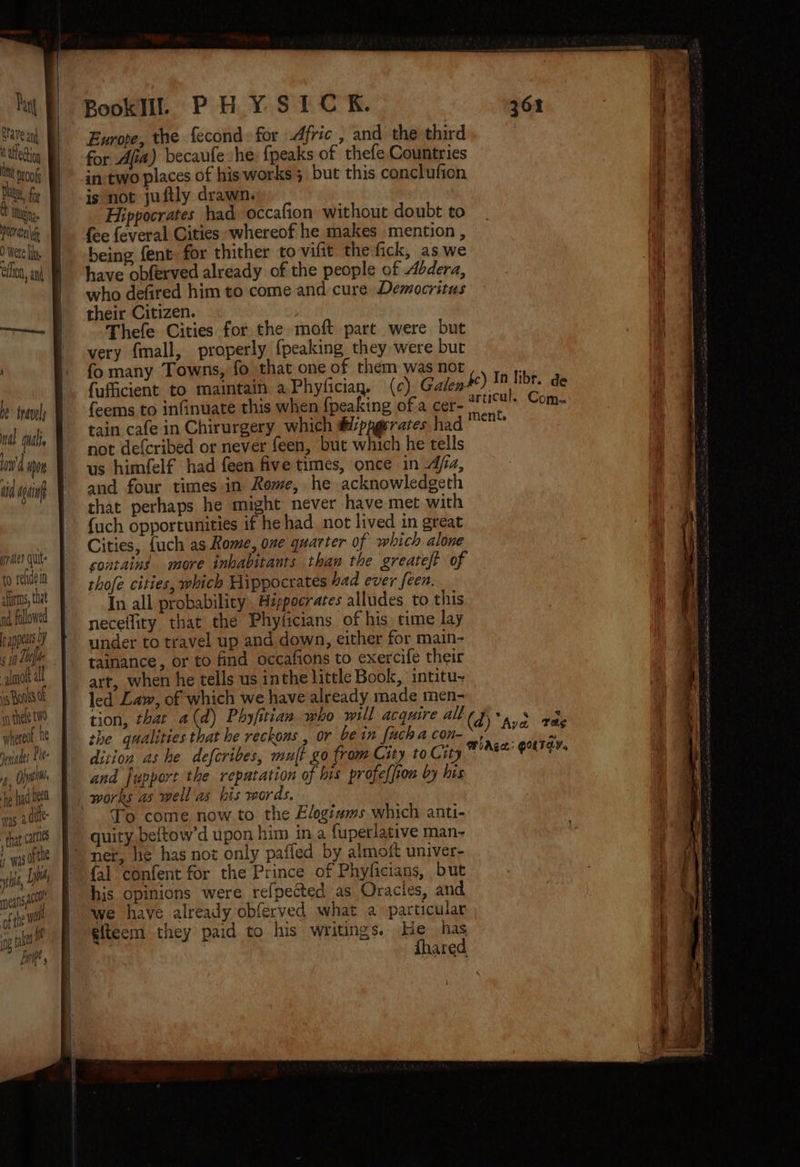 BookIII. PHYSICK. 361
Europe, the ſecond for Afric, and the third
for Aſia) becauſe he ſpeaks of theſe Countries
in two places of his works; but this concluſion
is not juſtly drawn.
Hippocrates had occaſion without doubt to
ſee ſeveral Cities whereof he makes mention,
being ſent for thither to viſit the ſick, as we
have obſerved already of the people of Abdera,
who deſired him to come and cure Democritus
their Citizen.
Theſe Cities for the moſt part were but
very ſmall, properly ſpeaking they were but
ſo many Towns, ſo that one of them was not
ſufficient to maintain a Phyſician. (c) Galen
ſeems to inſinuate this when ſpeaking of a cer-
tain caſe in Chirurgery which Hippocrates had
not deſcribed or never ſeen, but which he tells
us himſelf had ſeen five times, once in Aſia,
and four times in Rome, he acknowledgeth
that perhaps he might never have met with
ſuch opportunities if he had not lived in great
Cities, ſuch as Rome, one quarter of which alone
contains more inhabitants than the greateſt of
thoſe cities, which Hippocrates had ever ſeen.
In all probability Hippocrates alludes to this
neceſſity that the Phyſicians of his time lay
under to travel up and down, either for main-
tainance, or to find occaſions to exerciſe their
art, when he tells us in the little Book, intitu-
led Law, of which we have already made men-
tion, that a (d) Phyſitian who will acquire all
the qualities that he reckons, or be in ſuch a con-
dition as he deſcribes, muſt go from City to City
and ſupport the reputation of his profeſſion by his
works as well as his words.
To come now to the Elogiums which anti-
quity beſtow'd upon him in a ſuperlative man-
ner, he has not only paſſed by almoſt univer-
ſal conſent for the Prince of Phyſicians, but
his opinions were reſpected as Oracles, and
we have already obſerved what a particular
eſteem they paid to his writings. He has
ſhared
(c) In libr. de
articul. Com-
ment.
(d) Ἀνὰ τὰς
πόλεις φοιτᾷν.